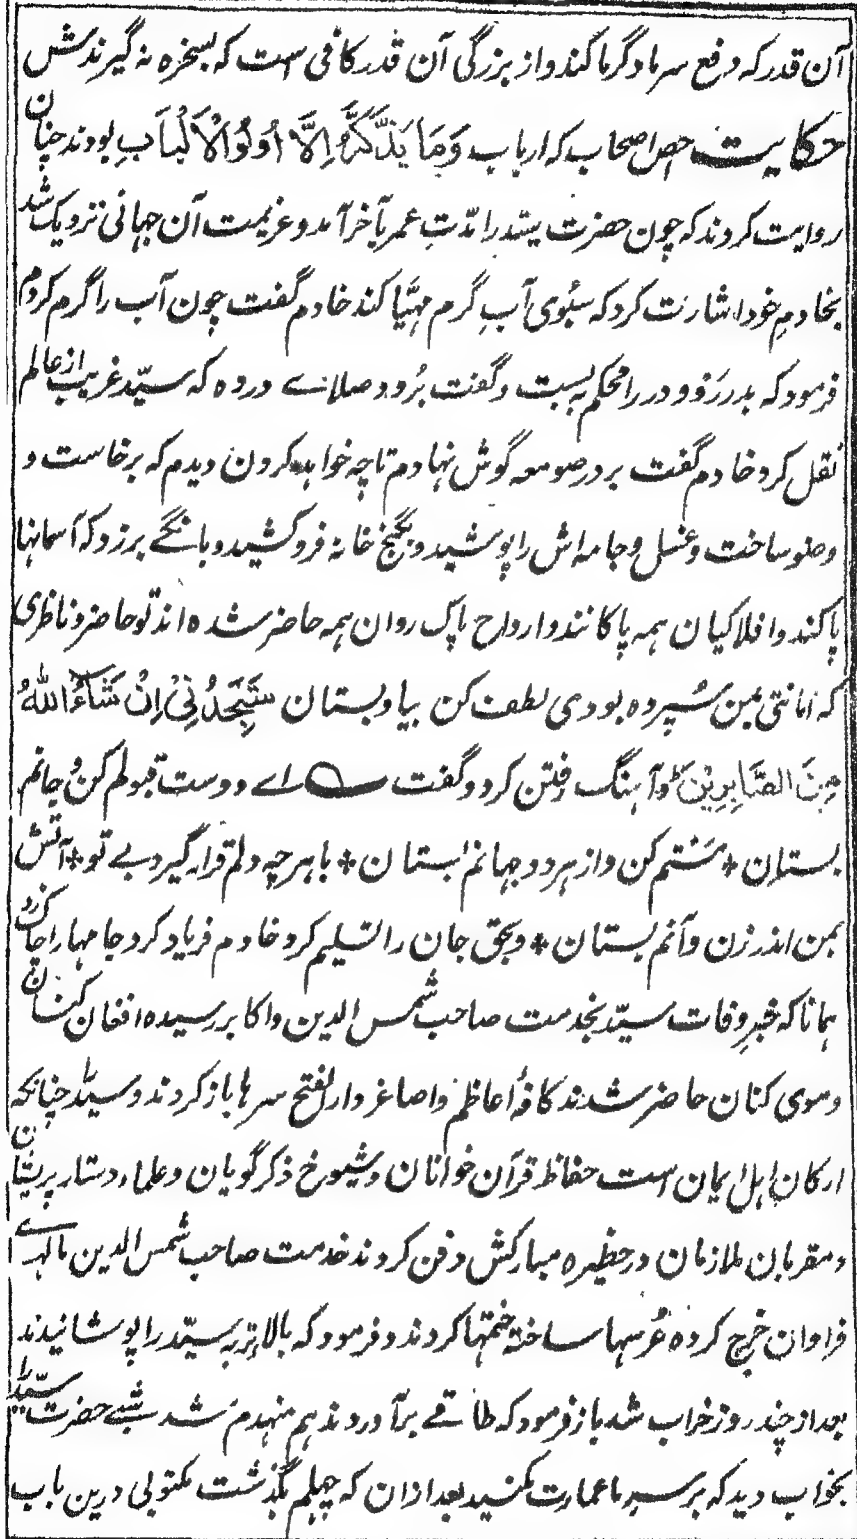 آن قدر که دفع سرما و گرما کند و از بزرگی آن قدر کافی است که بسخره نه گیرندش
حکایت اخص اصحاب که ارباب وَمَا یَذَّکَّرُ اِلَّا اُولُوا الْاَلْبَاب بودند چنان
روایت کردند که چون حضرت سیّد را مدّتِ عمر بآخر آمد و عزیمت آن جهانی نزدیک شد
بخادم خود اشارت کرد که سبُوی آبِ گرم مهیّا کند خادم گفت چون آب را گرم کردم
فرمود که بدر رَو و در را محکم به بست و گفت برو و صلائے در ده که سیّد غریب از عالم
نقل کرد خادم گفت بر در صومعه گوش نهادم تا چه خواهد کردن دیدم که برخاست و
وضو ساخت و غسل و جامه اش را پوشید و بکنج خانه فرو کشید و بانگے برزد که آسمانها
پاکند و افلاکیان همه پاکانند و ارواح پاک روان همه حاضر شده اند تو حاضر و ناظری
که امانتی بمن سُپرده بودی لطف کن بیا و بستان سَتَجِدُنِیْ اِنْ شَآءَ اللهُ
مِنَ الصَّابِرِیْنَ و آهنگ رفتن کرد و گفت اے دوست قبولم کن و جانم
بستان * مستم کن و از هر دو جهانم بستان * با هر چه دلم قرار گیرد بے تو * آتش
بمن اندر زن و آنم بستان * و بحق جان را تسلیم کرد خادم فریاد کرد جامها را چاک زد
همانا که خبر وفات سیّد بخدمت صاحب شمس الدین و اکابر رسیده افغان کنان
و موی کنان حاضر شدند کافهٔ اعاظم و اصاغر دار الفتح سرها باز کردند و سیّد را چنانکه
ارکان اهل ایمان است حفاظ قرآن خوانان و شیوخ ذکر گویان و علماء دستار پریشان
و مقربان ملازمان در حظیره مبارکش دفن کردند خدمت صاحب شمس الدین مالهاے
فراوان خرج کرده عُرسها ساخته ختمها کردند و فرمود که بالا تربه سیّد را پوشانیدند
بعد از چند روز خراب شد باز فرمود که طاقے بر آوردند هم منهدم شد شبے حضرت سیّد را
بخواب دید که بر سر ما عمارت مکنید بعد از آن که چهلم بگذشت مکتوبی درین باب